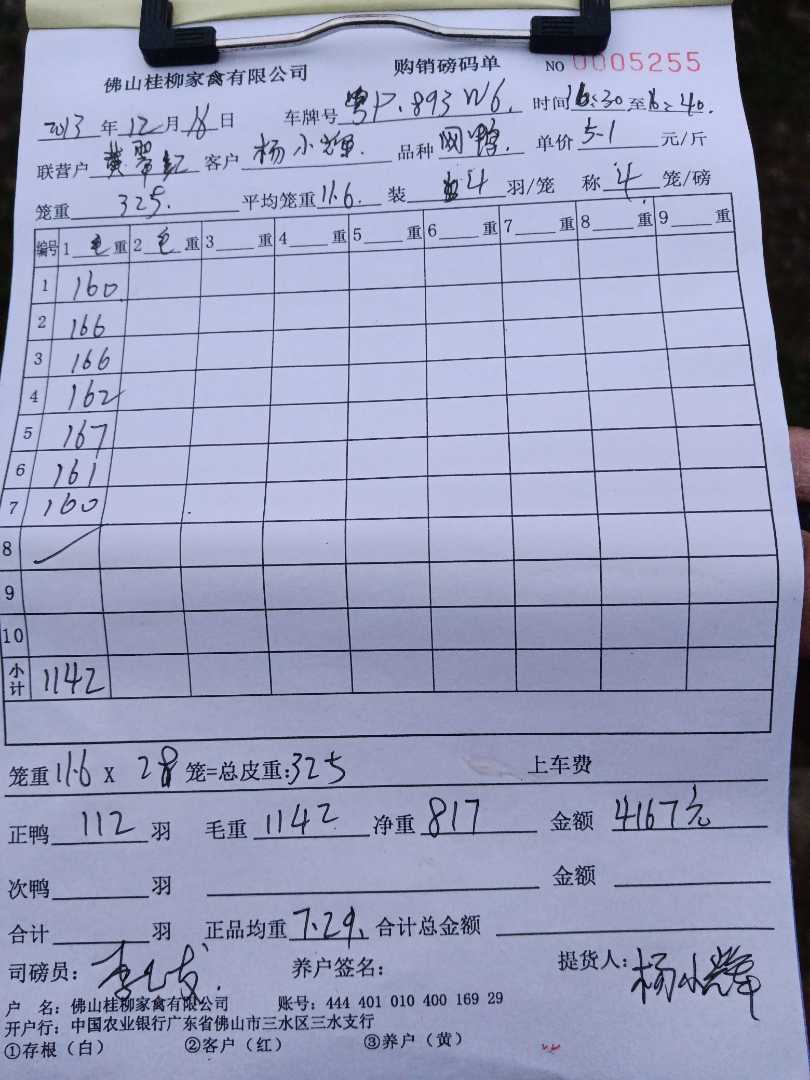 佛山桂柳家禽有限公司 购销磅码单 NO 0005255
2013年12月18日 车牌号粤P.893W6. 时间16:30至16:40.
联营户黄翠红 客户杨小辉. 品种网鸭. 单价5.1元/斤
笼重325. 平均笼重11.6. 装4羽/笼 称4笼/磅
编号 1毛重 2毛重 3重 4重 5重 6重 7重 8重 9重
1 160.
2 166
3 166
4 162
5 167
6 161
7 160
8
9
10
小计 1142
笼重11.6 X 28笼=总皮重:325 上车费
正鸭112羽 毛重1142 净重817 金额4167元
次鸭羽 金额
合计羽 正品均重7.29. 合计总金额
司磅员: 养户签名: 提货人:杨小辉
户 名: 佛山桂柳家禽有限公司 账号: 444 401 010 400 169 29
开户行: 中国农业银行广东省佛山市三水区三水支行
①存根(白) ②客户(红) ③养户(黄)